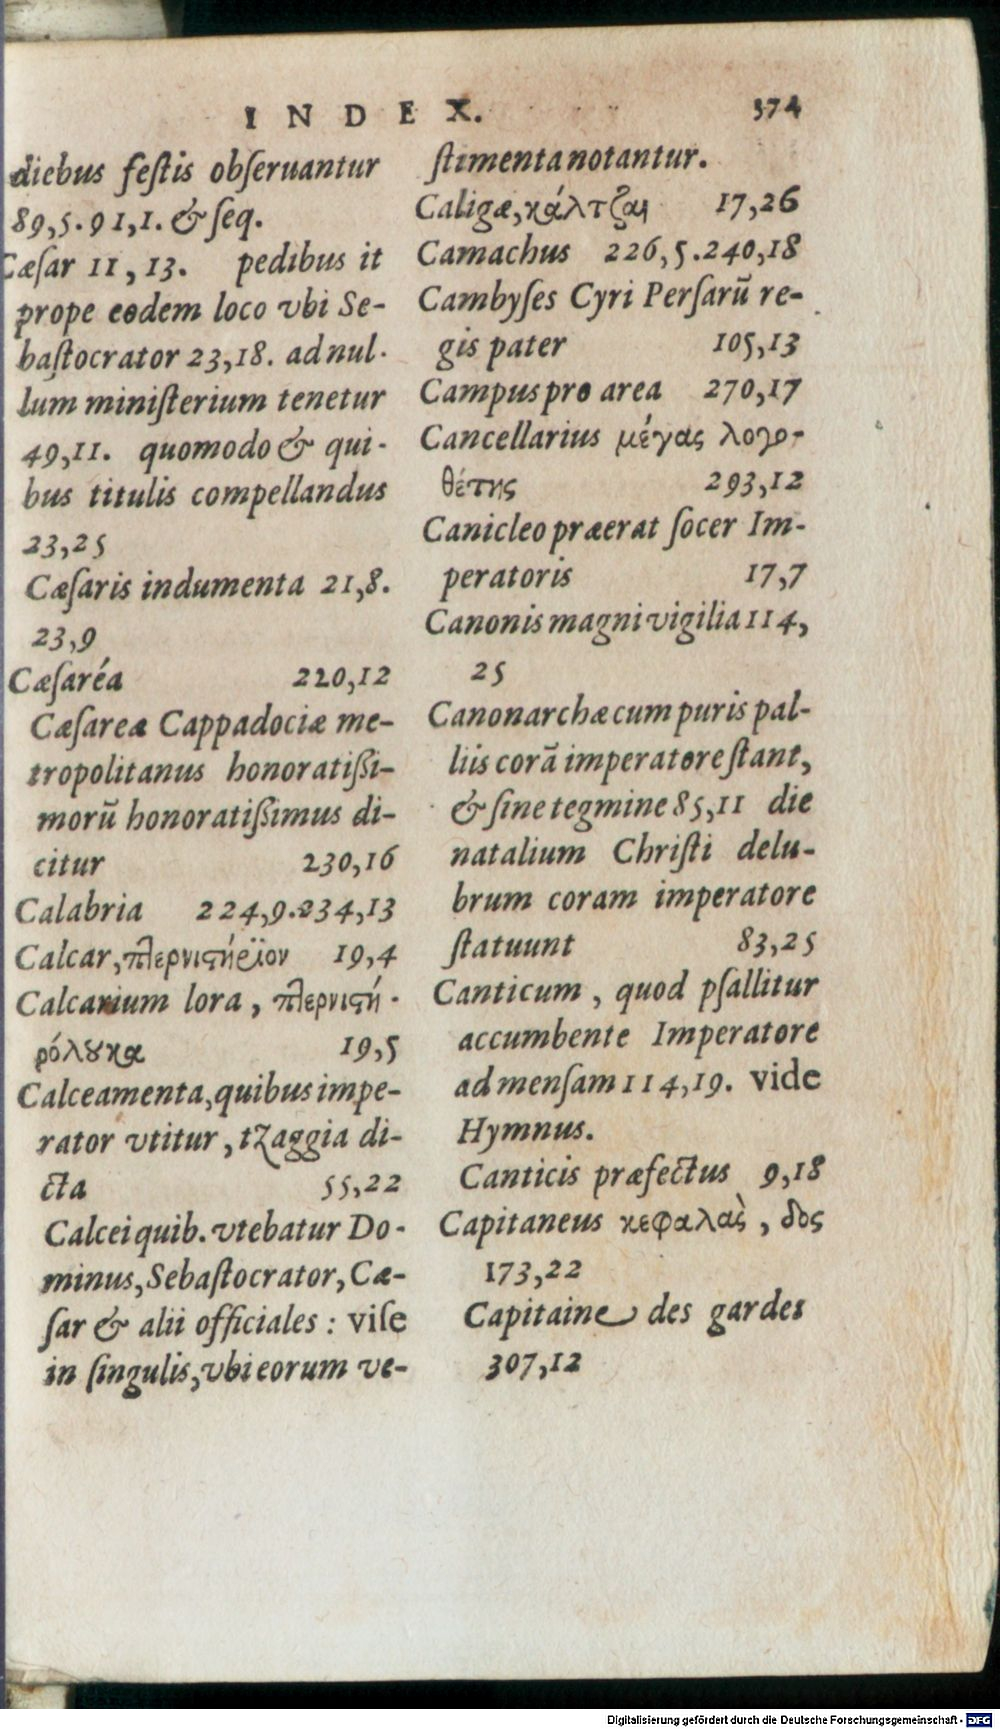 INDEX. 374
diebus festis obseruantur
89,5.91,1. & seq.
Cæsar 11,13. pedibus it
prope eodem loco vbi Se-
bastocrator 23,18. ad nul-
lum ministerium tenetur
49,11. quomodo & qui-
bus titulis compellandus
23,25
Cæsaris indumenta 21,8.
23,9
Cæsaréa 220,12
Cæsareæ Cappadociæ me-
tropolitanus honoratissi-
morū honoratissimus di-
citur 230,16
Calabria 224,9.234,13
Calcar, πλερνιστήρϊον 19,4
Calcarium lora, πλερνιστη-
ρόλουκα 19,5
Calceamenta, quibus impe-
rator vtitur, tzaggia di-
cta 55,22
Calcei quib. vtebatur Do-
minus, Sebastocrator, Cæ-
sar & alii officiales: vise
in singulis, vbi eorum ve-
stimenta notantur.
Caligæ, κάλτζαι 17,26
Camachus 226,5.240,18
Cambyses Cyri Persarū re-
gis pater 105,13
Campus pro area 270,17
Cancellarius μέγας λογο-
θέτης 293,12
Canicleo præerat socer Im-
peratoris 17,7
Canonis magni vigilia 114,
25
Canonarchæ cum puris pal-
liis corā imperatore stant,
& sine tegmine 85,11 die
natalium Christi delu-
brum coram imperatore
statuunt 83,25
Canticum, quod psallitur
accumbente Imperatore
ad mensam 114,19. vide
Hymnus.
Canticis præfectus 9,18
Capitaneus κεφαλὰς, δος
173,22
Capitaine des gardes
307,12
Digitalisierung gefördert durch die Deutsche Forschungsgemeinschaft - DFG